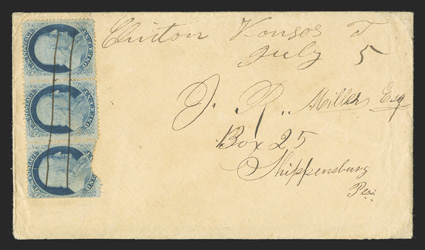 Clinton Kansas T
July 5
J. R. Miller Esq
Box 25
Shippensburg
Pa.